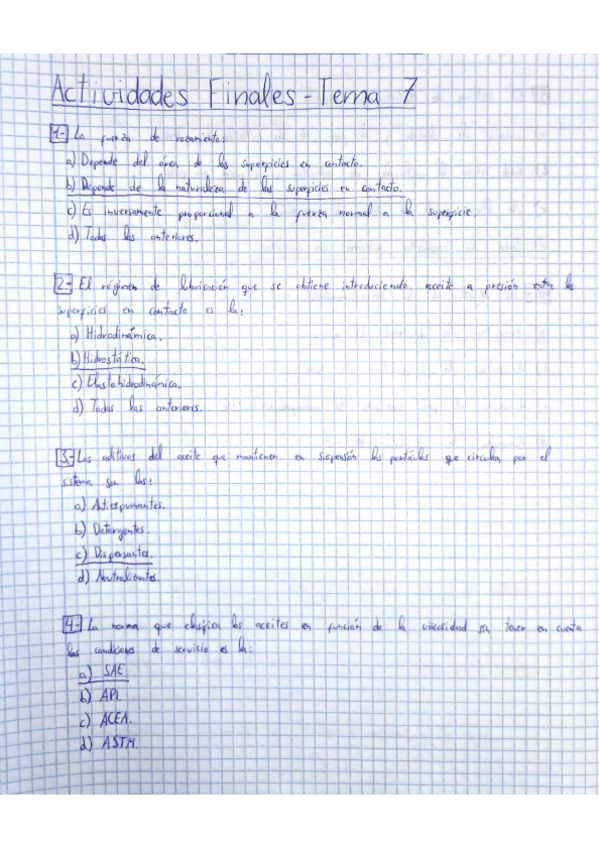 Actividades Finales - Tema 7
1.- La fuerza de rozamiento:
a) Depende del área de las superficies en contacto.
b) Depende de la naturaleza de las superficies en contacto.
c) Es inversamente proporcional a la fuerza normal a la superficie.
d) Todas las anteriores.
2.- El régimen de lubricación que se obtiene introduciendo aceite a presión entre las
superficies en contacto es la:
a) Hidrodinámica.
b) Hidrostática.
c) Elastohidrodinámica.
d) Todas las anteriores.
3.- Los aditivos del aceite que mantienen en suspensión las partículas que circulan por el
sistema son los:
a) Antiespumantes.
b) Detergentes.
c) Dispersantes.
d) Neutralizantes.
4.- La norma que clasifica los aceites en función de la viscosidad sin tener en cuenta
las condiciones de servicio es la:
a) SAE
b) API.
c) ACEA.
d) ASTM.